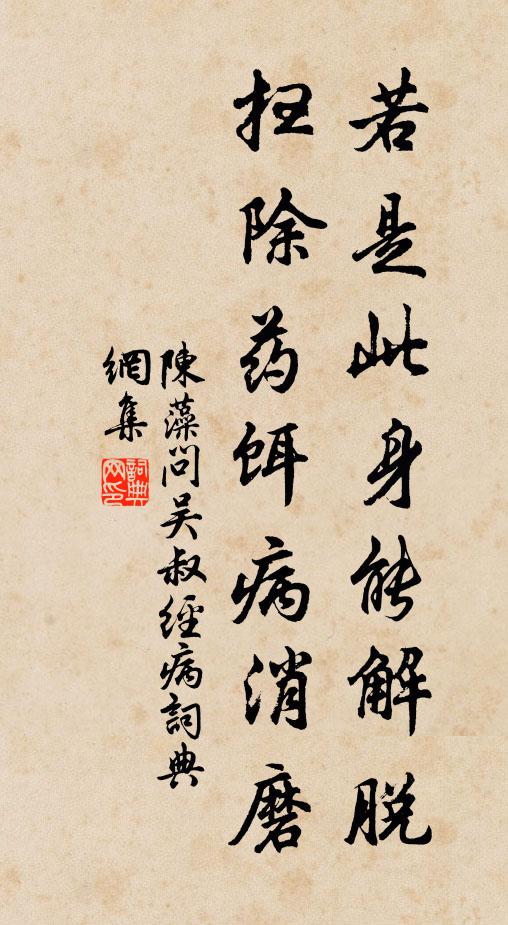 若是此身能解脱
扫除药饵病消磨
陳藻问吴叔经病詞典
網集
詞典
网印